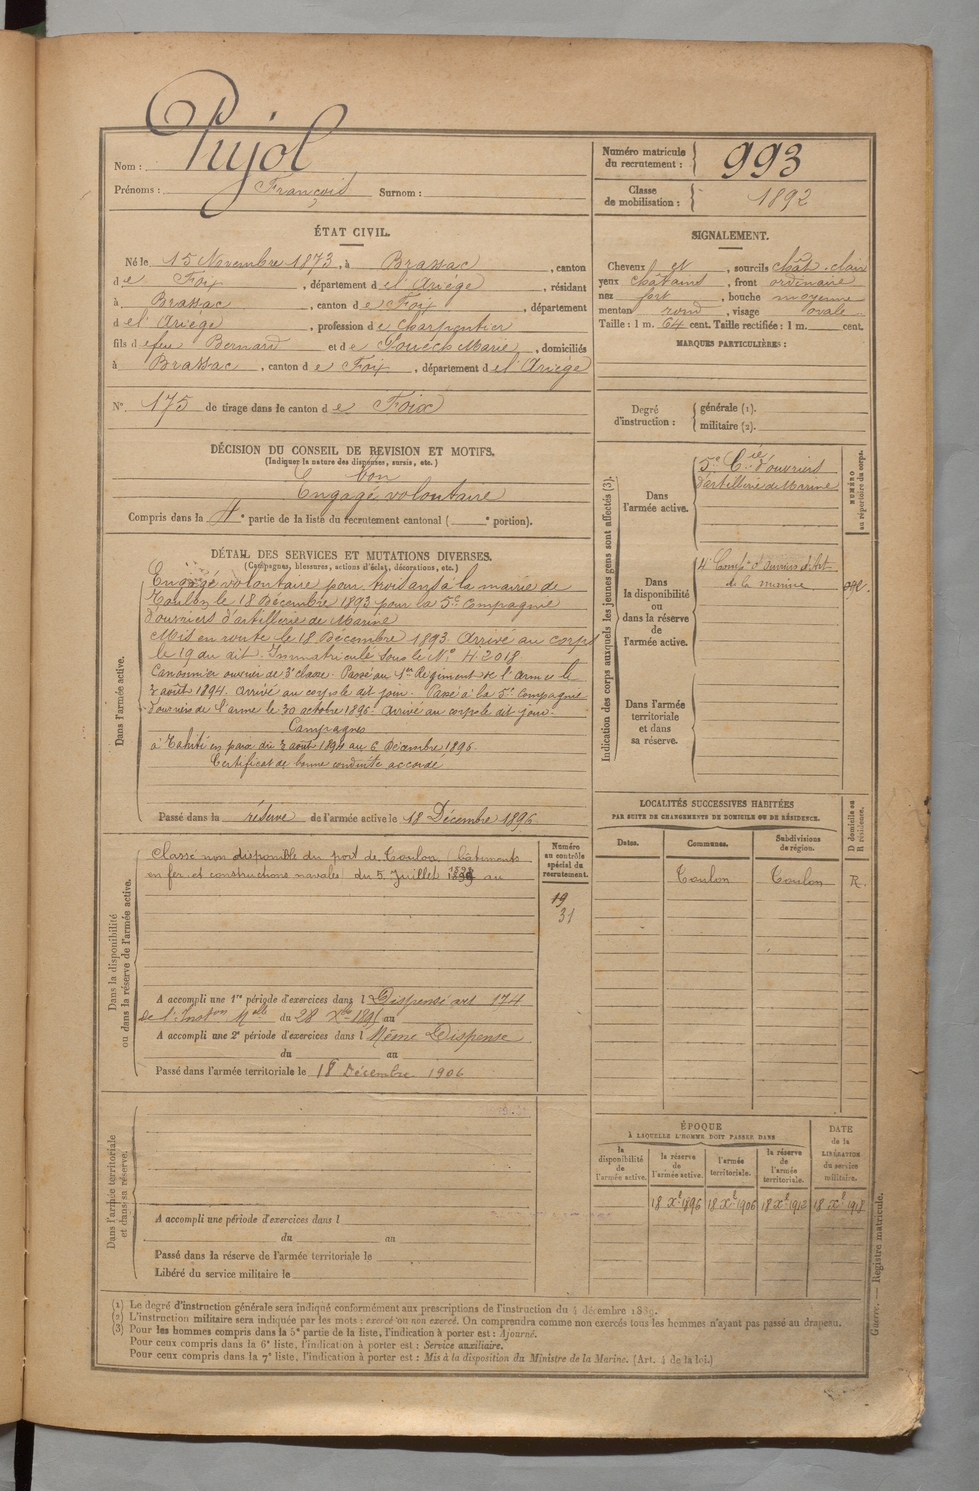 Nom : Pujol
Prénoms : François Surnom :
Numéro matricule du recrutement : 993
Classe de mobilisation : 1892
ÉTAT CIVIL.
Né le 15 Novembre 1873, à Brassac, canton
de Foix, département de l'Ariège, résidant
à Brassac, canton de Foix, département
de l'Ariège, profession de charpentier
fils de feu Bernard et de Souéch Marie, domiciliés
à Brassac, canton de Foix, département de l'Ariège
N° 175 de tirage dans le canton de Foix
SIGNALEMENT.
Cheveux et, sourcils chât. clair
yeux châtains, front ordinaire
nez fort, bouche moyenne
menton rond, visage ovale
Taille : 1 m. 64 cent. Taille rectifiée : 1 m. cent.
MARQUES PARTICULIÈRES :
Degré d'instruction : générale (1).
militaire (2).
DÉCISION DU CONSEIL DE REVISION ET MOTIFS.
(Indiquer la nature des dispenses, sursis, etc.)
bon
Engagé volontaire
Compris dans la 4e partie de la liste du recrutement cantonal ( e portion).
DÉTAIL DES SERVICES ET MUTATIONS DIVERSES.
(Campagnes, blessures, actions d'éclat, décorations, etc.)
Dans l'armée active.
Engagé volontaire pour trois ans à la mairie de
Toulon le 18 Décembre 1893 pour la 5e Compagnie
d'ouvriers d'artillerie de Marine
Mis en route le 18 Décembre 1893. Arrivé au corps
le 19 du dit. Immatriculé sous le N° 42018
Canonnier ouvrier de 3e classe. Passé au 1er Régiment de l'arme le
2 août 1894. Arrivé au corps le dit jour. Passé à la 5e Compagnie
d'ouvriers de l'arme le 30 octobre 1896. Arrivé au corps le dit jour.
Campagnes
à Tahiti en paix du 2 août 1894 au 6 Décembre 1896.
Certificat de bonne conduite accordé
Passé dans la réserve de l'armée active le 18 Décembre 1896
Indication des corps auxquels les jeunes gens sont affectés (3).
NUMÉRO au répertoire du corps.
Dans l'armée active.
5e Cie d'ouvriers
d'artillerie de Marine
Dans la disponibilité ou dans la réserve de l'armée active.
4e Compie d'Ouvriers d'Art.
de la marine
Dans l'armée territoriale et dans sa réserve.
Dans la disponibilité ou dans la réserve de l'armée active.
Classé non disponible du port de Toulon (bâtiments
en fer et constructions navales) du 5 Juillet 1898 au
Numéro au contrôle spécial du recrutement.
19
31
A accompli une 1re période d'exercices dans l Dispensé art. 174
de l'Inston Mlle du 28 Xbre 1895 au
A accompli une 2e période d'exercices dans l Même Dispense
du au
Passé dans l'armée territoriale le 18 Décembre 1906
LOCALITÉS SUCCESSIVES HABITÉES
PAR SUITE DE CHANGEMENTS DE DOMICILE OU DE RÉSIDENCE.
Dates. Communes. Subdivisions de région. D domicile ou R résidence.
Toulon Toulon R.
Dans l'armée territoriale et dans sa réserve.
A accompli une période d'exercices dans l
du au
Passé dans la réserve de l'armée territoriale le
Libéré du service militaire le
ÉPOQUE
À LAQUELLE L'HOMME DOIT PASSER DANS
la disponibilité de l'armée active. la réserve de l'armée active. l'armée territoriale. la réserve de l'armée territoriale. DATE de la LIBÉRATION du service militaire.
18 Xe 1896 18 Xe 1906 18 Xe 1912 18 Xe 1918
Guerre. — Registre matricule.
(1) Le degré d'instruction générale sera indiqué conformément aux prescriptions de l'instruction du 4 décembre 1889.
(2) L'instruction militaire sera indiquée par les mots : exercé ou non exercé. On comprendra comme non exercés tous les hommes n'ayant pas passé au drapeau.
(3) Pour les hommes compris dans la 5e partie de la liste, l'indication à porter est : Ajourné.
Pour ceux compris dans la 6e liste, l'indication à porter est : Service auxiliaire.
Pour ceux compris dans la 7e liste, l'indication à porter est : Mis à la disposition du Ministre de la Marine. (Art. 4 de la loi.)